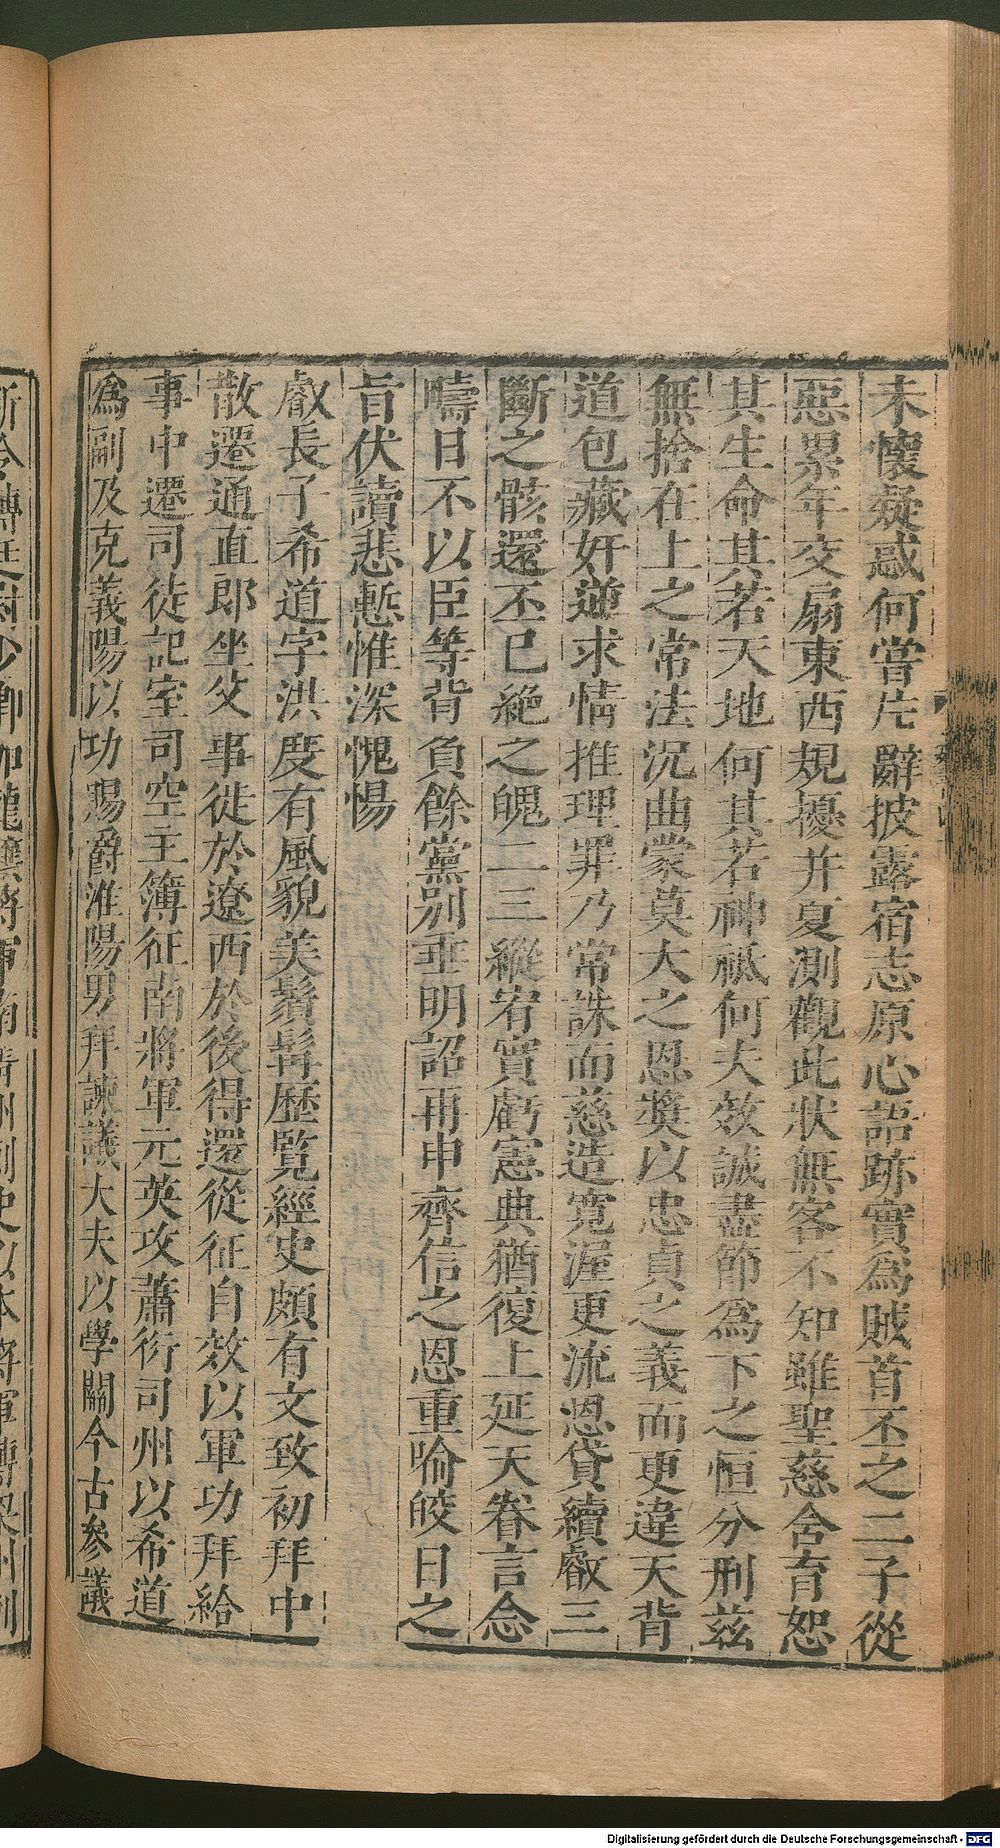 未懷疑惑何嘗片辭披露宿志原心語跡實為賊首丕之二子從
惡累年交扇東西規擾并夏測觀此狀無容不知雖聖慈含育恕
其生命其若天地何其若神祗何夫效誠盡節為下之恒分刑茲
無捨在上之常法沉曲蒙莫大之恩奬以忠貞之義而更違天背
道包藏奸逆求情推理罪乃常誅而慈造寛渥更流恩貸續叡三
斷之骸還丕已絕之魄二三縱宥實虧憲典猶復上延天眷言念
疇日不以臣等背負餘黨別垂明詔再申齊信之恩重喻皎日之
旨伏讀悲慙惟深愧惕
叡長子希道字洪度有風貌美鬚髯歷覽經史頗有文致初拜中
散遷通直郎坐父事徙於遼西於後得還從征自效以軍功拜給
事中遷司徒記室司空主簿征南將軍元英攻蕭衍司州以希道
為副及克義陽以功賜爵淮陽男拜諫議大夫以學關今古參議